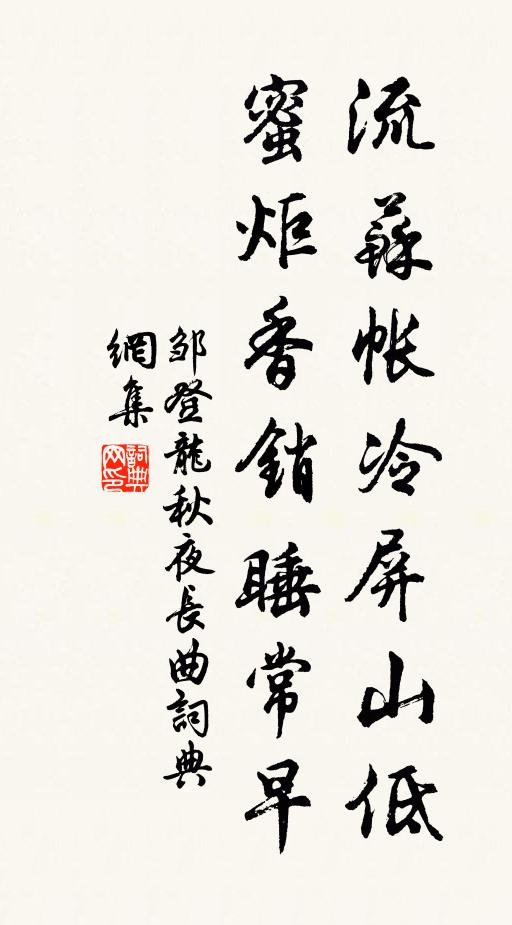 流蘇帐冷屏山低
蜜炬香銷睡常早
邹登龍秋夜長曲詞典
網集
詞典
网印